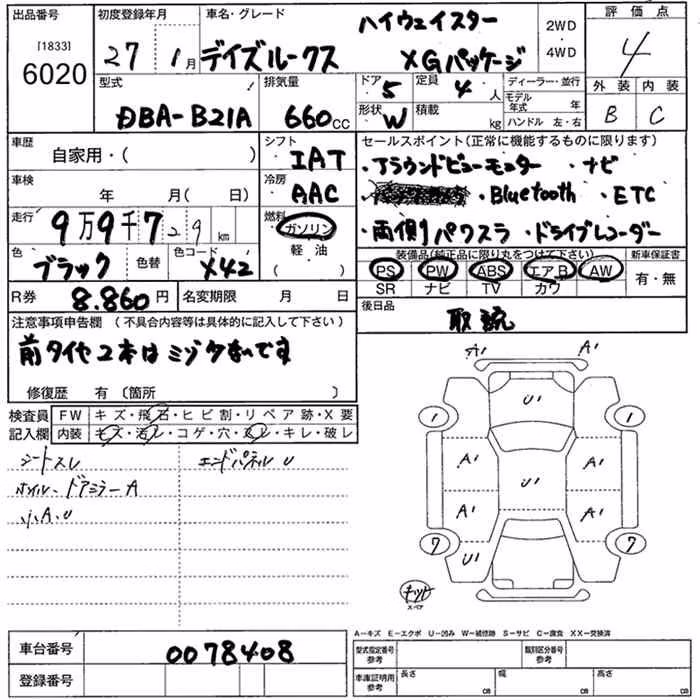 出品番号 [1833] 6020
初度登録年月 27 1月
車名・グレード デイズルークス ハイウェイスター XGパッケージ
2WD・4WD
評価点 4
型式 DBA-B21A
排気量 660cc
ドア 5
定員 4人
ディーラー・並行
形状 W
積載 kg
モデル年式 年
ハンドル 左・右
外装 B
内装 C
車歴 自家用・( )
シフト IAT
車検 年 月(日)
冷房 AAC
走行 9万9千729km
燃料 ガソリン 軽油
色 ブラック 色替
色コード X42
R券 8.860円
名変期限 月 日
セールスポイント(正常に機能するものに限ります)
・アラウンドビューモニター ・ナビ
・Bluetooth ・ETC
・両側パワスラ ・ドライブレコーダー
装備品(純正品に限り丸をつけて下さい)
PS PW ABS エアB AW
SR ナビ TV カワ
新車保証書 有・無
後日品 取説
注意事項申告欄 (不具合内容等は具体的に記入して下さい)
前タイヤ2本はミゾ少ないです
修復歴 有 〔箇所 〕
検査員記入欄
FW キズ・飛石・ヒビ割・リペア跡・X要
内装 キズ・汚レ・コゲ・穴・スレ・キレ・破レ
シートスレ
ホイル、ドアミラーA
小A、U
エンドパネルU
A1 A1
U1
1 1
A1 U1 A1
A1 A1
7 7
U1
キット
スペア
A-キズ E-エクボ U-凹み W-補修跡 S-サビ C-腐食 XX-交換済
車台番号 0078408
登録番号
型式指定番号参考
類別区分番号参考
車庫証明用参考 長さ cm 幅 cm 高さ cm